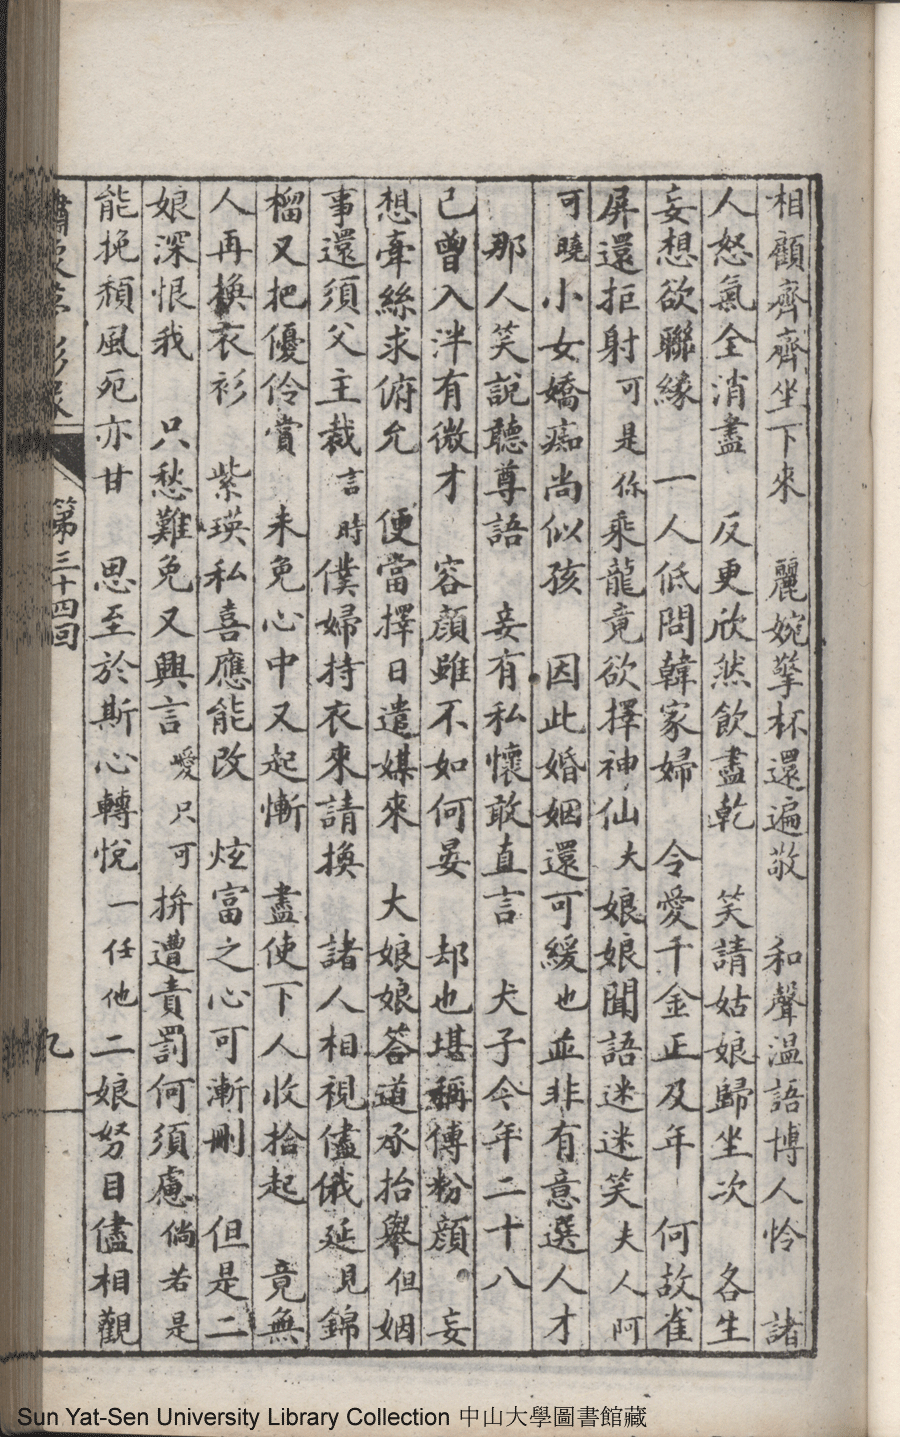 相顧齊齊坐下來　麗婉擎杯還遍敬　和聲溫語博人怜　諸
人怒氣全消盡　反更欣然飲盡乾　笑請姑娘歸坐次　各生
妄想欲聯緣　一人低問韓家婦　令愛千金正及年　何故雀
屏還拒射可是你乘龍竟欲擇神仙大娘娘聞語迷迷笑夫人阿
可曉小女嬌痴尚似孩　因此婚姻還可緩也並非有意選人才
那人笑說聽尊語　妾有私懷敢直言　犬子今年二十八
已曾入泮有微才　容顏雖不如何晏　却也堪稱傅粉顏　妄
想牽絲求俯允　便當擇日遣媒來　大娘娘答道承抬舉但姻
事還須父主裁言時僕婦持衣來請換　諸人相視儘俄延見錦
榴又把優伶賞　未免心中又起慚　盡使下人收拾起　竟無
人再換衣衫　紫瑛私喜應能改　炫富之心可漸刪　但是二
娘深恨我　只愁難免又興言噯只可拚遭責罰何須慮倘若是
能挽頹風死亦甘　思至於斯心轉悅一任他二娘努目儘相觀
第三十四回
九
Sun Yat-Sen University Library Collection 中山大學圖書館藏